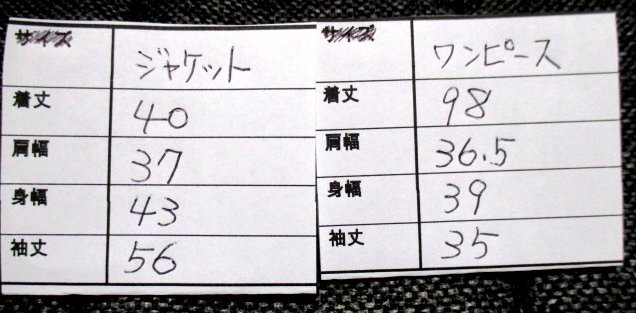 サイズ ジャケット
着丈 40
肩幅 37
身幅 43
袖丈 56
サイズ ワンピース
着丈 98
肩幅 36.5
身幅 39
袖丈 35